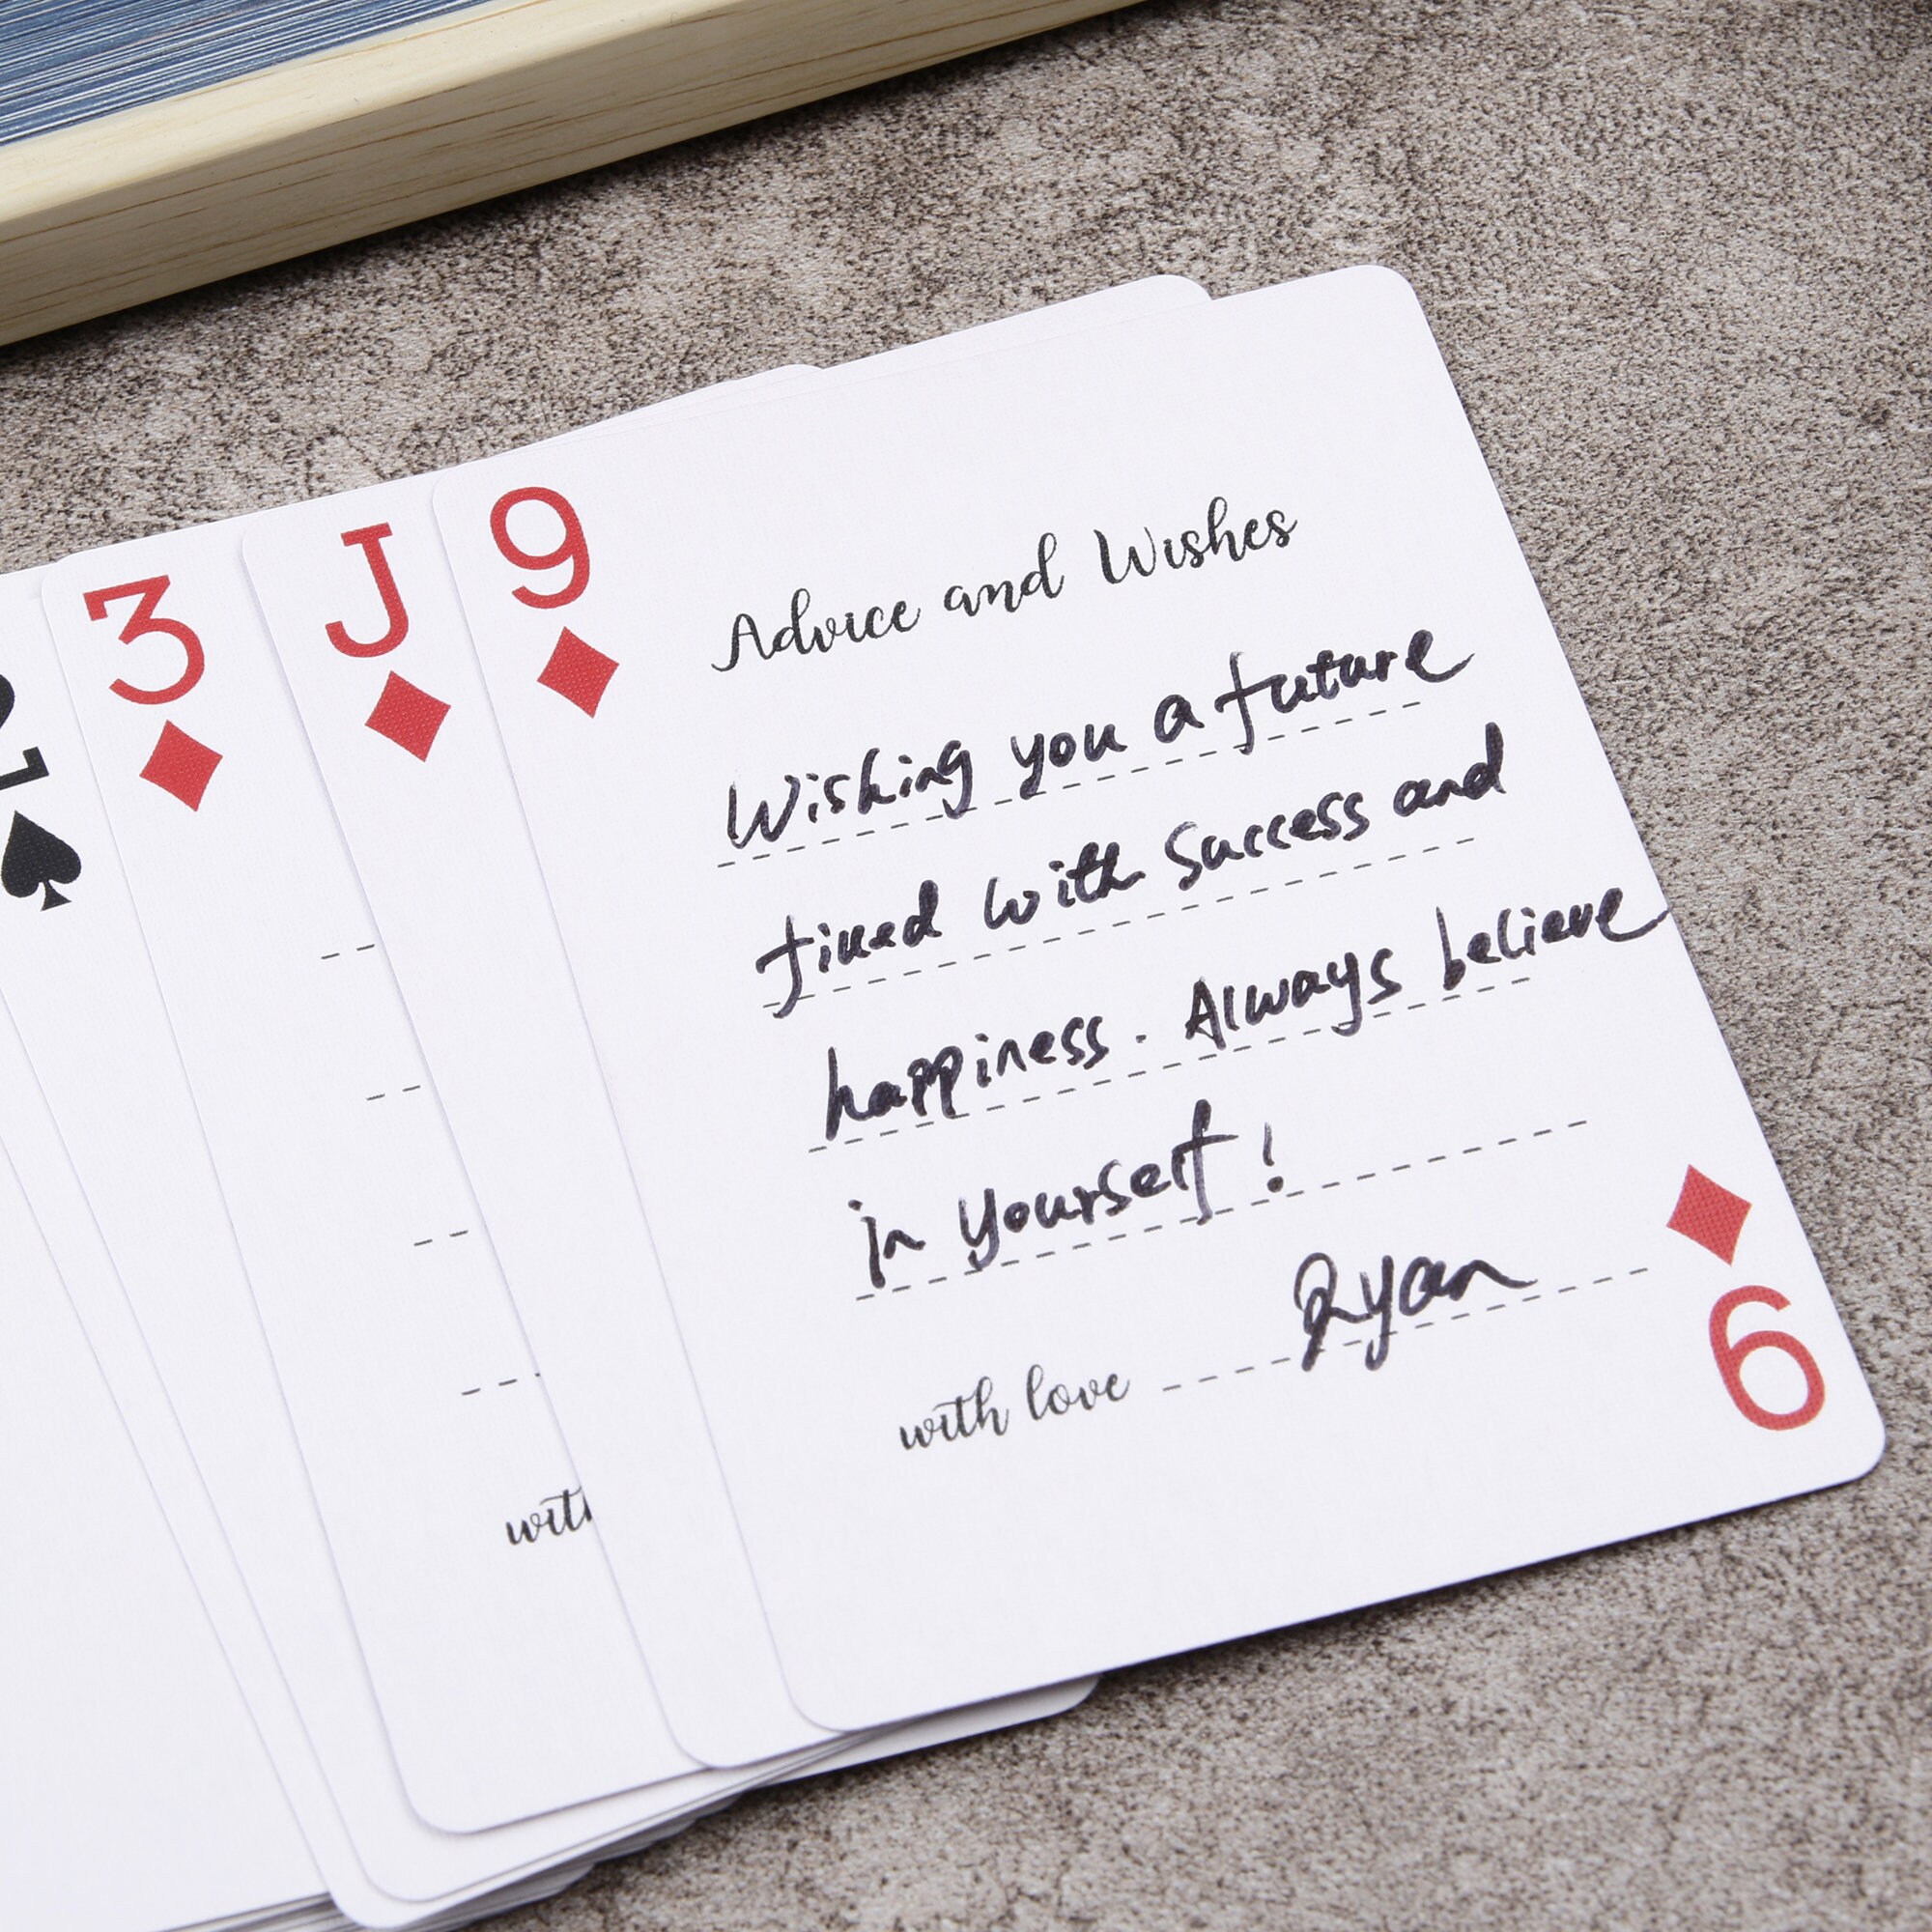 2
3
J
9
Advice and Wishes
Wishing you a future
filled with success and
happiness. Always believe
in yourself!
Ryan
with love
with
9